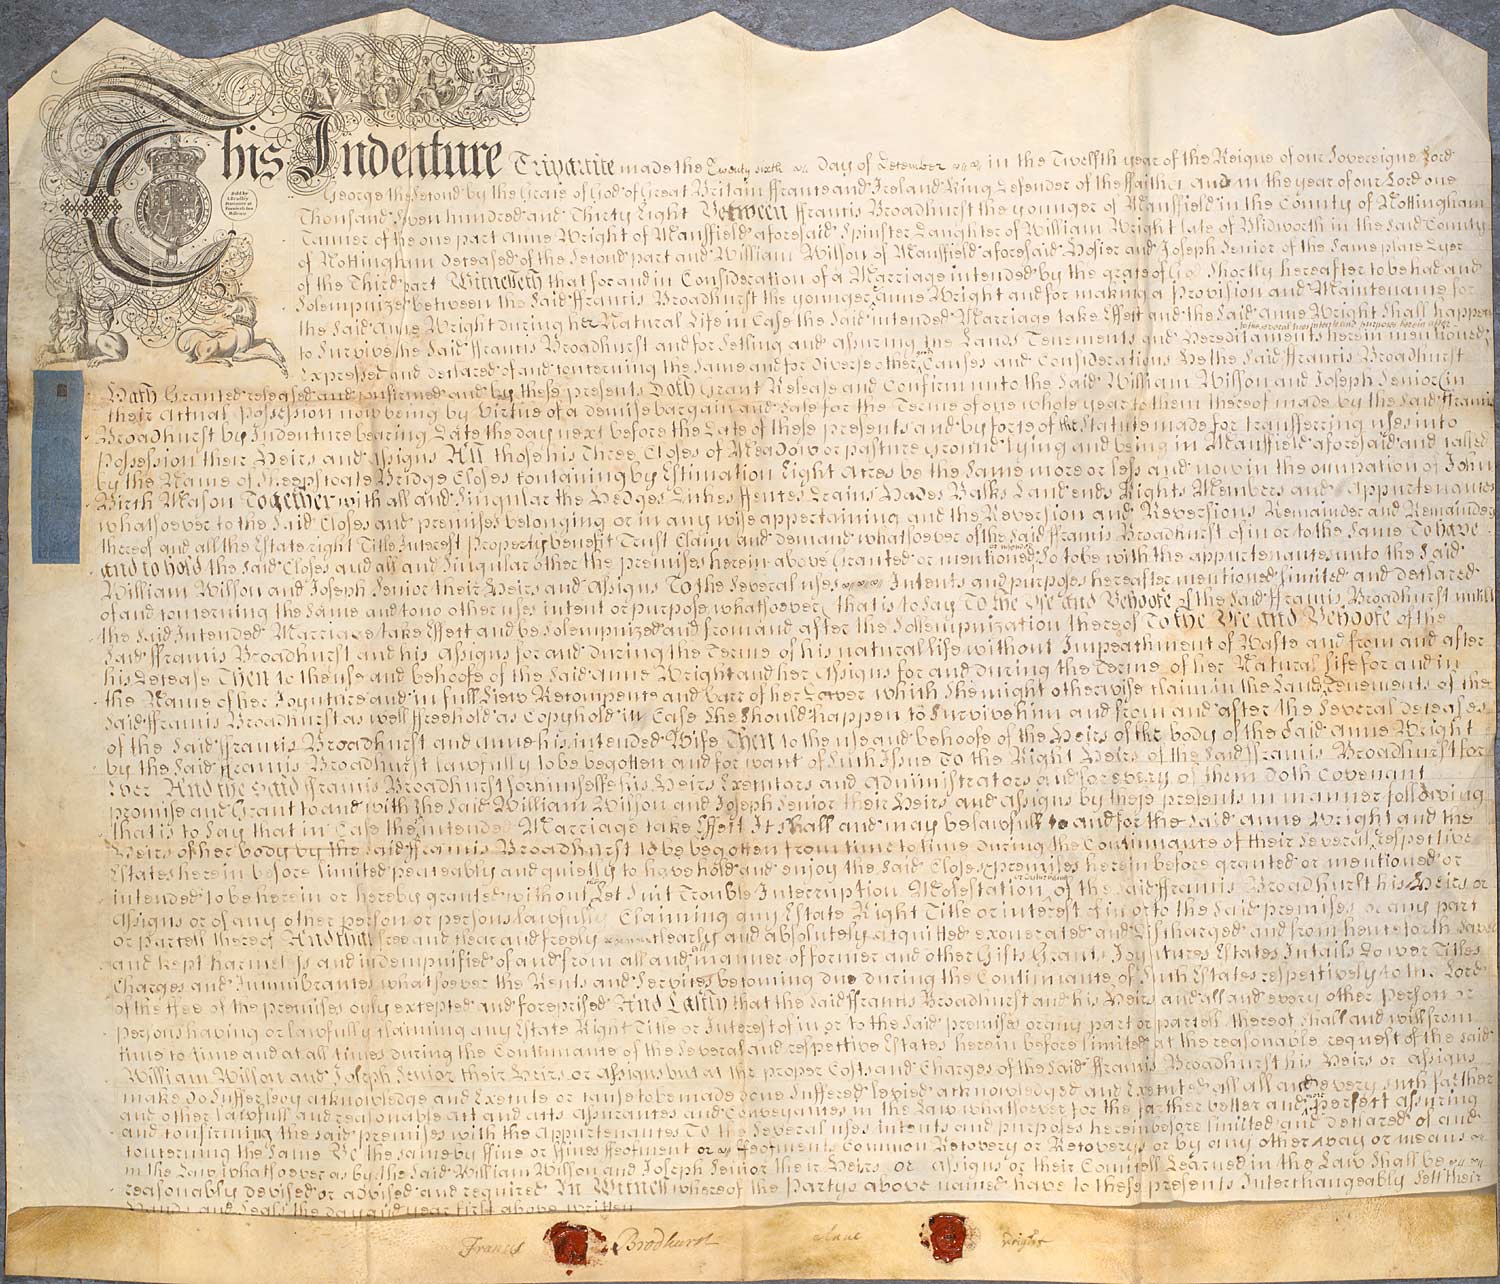 This Indenture Tripartite made the Twenty sixth Day of December in the Twelfth year of the Reigne of our Sovereigne Lord
George the Second by the Grace of God of Great Britain ffrance and Ireland King Defender of the ffaith &c and in the year of our Lord one
Thousand Seven hundred and Thirty Eight Between ffrancis Broadhurst the younger of Mansfield in the County of Nottingham
Tanner of the one part Anne Wright of Mansfield aforesaid Spinster Daughter of William Wright late of Blidworth in the Said County
of Nottingham Deceased of the Second part and William Wilson of Mansfield aforesaid Hosier and Joseph Senior of the Same place Dyer
of the Third part Witnesseth that for and in Consideration of a Marriage intended by the grace of God Shortly hereafter to be had and
Solempnized between the Said ffrancis Broadhurst the younger Anne Wright and for making a Provision and Maintenance for
the Said Anne Wright during her Natural Life in Case the Said intended Marriage take Effect and the Said Anne Wright Shall happen
to the several uses intents and purposes herein after
to Survive the Said ffrancis Broadhurst and for Setling and assuring the Lands Tenements and Hereditaments herein mentioned
Expressed and declared of and concerning the Same and for Diverse other Causes and Considerations He the Said ffrancis Broadhurst
Hath Granted released and confirmed and by these presents Doth Grant Release and Confirm unto the Said William Wilson and Joseph Senior (in
their Actual Possession now being by Virtue of a demise bargain and Sale for the Terme of one whole year to them thereof made by the Said ffrancis
Broadhurst by Indenture bearing Date the day next before the Date of these presents and by force of the Statute made for transferring uses into
Possession their Heirs and Assigns All those his Three Closes of Meadow or pasture ground lying and being in Mansfield aforesaid and called
by the Name of Bridge Closes containing by Estimation Eight Acres be the Same more or less and now in the occupation of John
Birth Mason Together with all and Singular the Hedges Ditches ffences Drains Hades Balks Land ends Rights Members and Appurtenances
whatsoever to the Said Closes and premises belonging or in any wise appertaining and the Reversion and Reversions Remainder and Remainders
thereof and all the Estate right Title Interest Property benefit Trust Claim and demand whatsoever of the Said ffrancis Broadhurst of in or to the Same To have
and to hold the Said Closes and all and Singular other the premises herein above Granted or mentioned So to be with the appurtenances unto the Said
William Wilson and Joseph Senior their Heirs and Assigns To the Several uses Intents and purposes hereafter mentioned limited and declared
of and concerning the Same and to no other uses intent or purpose whatsoever that is to Say To the Use and Behoofe of the Said ffrancis Broadhurst untill
the Said Intended Marriage take Effect and be Solempnized and from and after the Sollempnization thereof To the Use and Behoofe of the
Said ffrancis Broadhurst and his Assigns for and during the Terme of his natural life without Impeachment of Waste and from and after
his Decease Then to the use and behoofe of the Said Anne Wright and her Assigns for and during the Terme of her Natural life for and in
the Name of her Joynture and in full Lieu Recompence and barr of her Dower which She might otherwise claim in the Lands Tenements of the
Said ffrancis Broadhurst as well ffreehold as Copyhold in Case She Should happen to Survive him and from and after the Several Deceases
of the Said ffrancis Broadhurst and Anne his intended Wife Then to the use and behoofe of the Heirs of the body of the Said Anne Wright
by the Said ffrancis Broadhurst lawfully to be begotten and for want of Such Issue To the Right Heirs of the Said ffrancis Broadhurst for
Ever And the Said ffrancis Broadhurst for himselfe his Heirs Executors and Administrators and for every of them doth Covenant
promise and Grant to and with the Said William Wilson and Joseph Senior their Heirs and Assigns by these presents in manner following
that is to Say that in Case the intended Marriage take Effect It Shall and may be lawfull to and for the Said Anne Wright and the
Heirs of her body by the Said ffrancis Broadhurst to be begotten from time to time During the Continuance of their Several respective
Estates herein before limited peaceably and quietly to have hold and enjoy the Said Closes & premises herein before granted or mentioned or
intended to be herein or hereby granted without Let Suit Trouble Interruption Molestation of the Said ffrancis Broadhurst his Heirs or
Assigns or of any other person or persons lawfully Claiming any Estate Right Title or interest of in or to the Said premises or any part
or parcell thereof And that free and clear and freely clearly and absolutely acquitted exonerated and Discharged and from henceforth Saved
and kept harmeless and indempnified of and from all and manner of former and other Gifts Grants Joyntures Estates Intails Dower Titles
Charges and Incumbrances whatsoever the Rents and Services becoming due during the Continuance of Such Estates respectively to the Lord
of the ffee of the premises only excepted and foreprised And Lastly that the Said ffrancis Broadhurst and his Heirs and all and every other Person or
persons having or lawfully claiming any Estate Right Title or Interest of in or to the Said premises or any part or parcell thereof Shall and will from
time to time and at all times during the Continuance of the Several and respective Estates herein before limited at the reasonable request of the Said
William Wilson and Joseph Senior their Heirs or Assigns but at the proper Costs and Charges of the Said ffrancis Broadhurst his Heirs or Assigns
make do Suffer levy acknowledge and Execute or cause to be made done Suffered levied acknowledged and Executed all and every such farther
and other lawfull and reasonable act and acts assurances and Conveyances in the Law whatsoever for the farther better and more perfect assuring
and confirming the Said premises with the Appurtenances To the Several uses intents and purposes herein before limited and declared of and
concerning the Same Be the same by ffine or ffines ffeofment or ffeofments Common Recovery or Recoverys or by any other way or means
in the Law whatsoever as by the Said William Wilson and Joseph Senior their Heirs or Assigns or their Councell Learned in the Law Shall be
reasonably devised or advised and required In Witness whereof the Partys above named have to these presents Interchangeably Sett their
Hands and Seals the day and year first above written
Francis Brodhurst Anne Wright